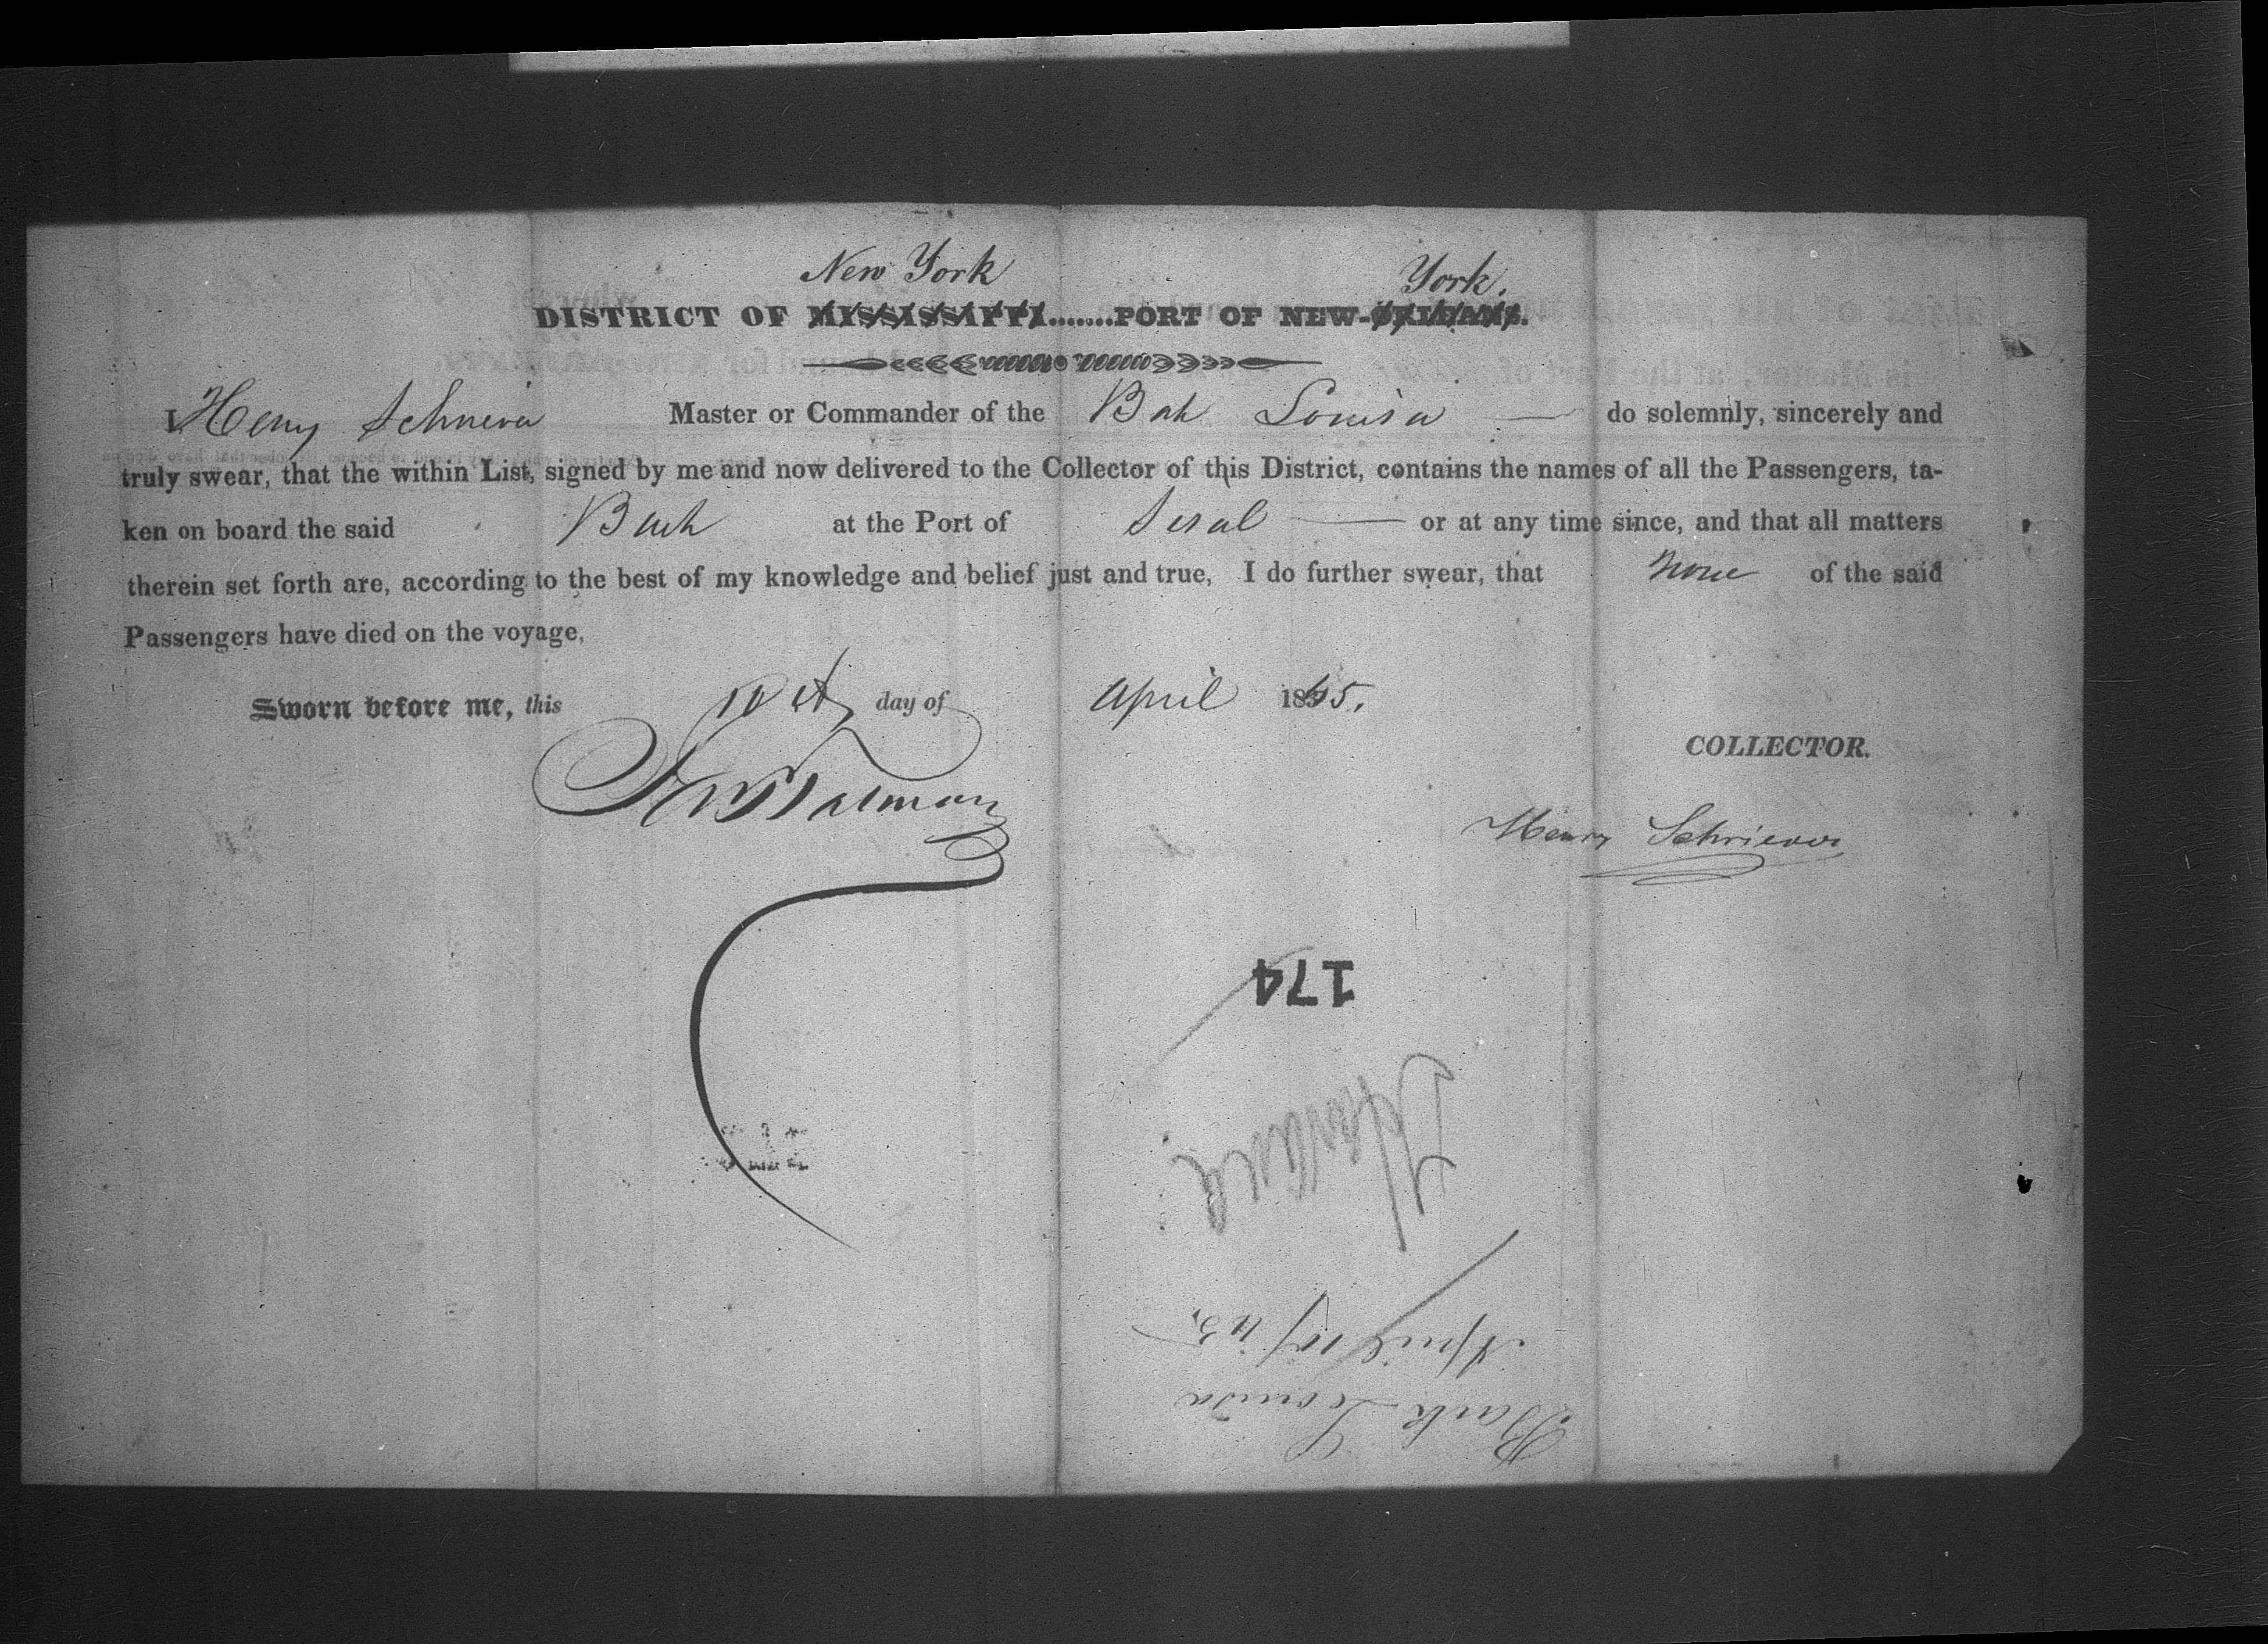 New York York.
DISTRICT OF MISSISSIPPI........PORT OF NEW-ORLEANS.
I Henry Schriever Master or Commander of the Bark Louisa do solemnly, sincerely and
truly swear, that the within List, signed by me and now delivered to the Collector of this District, contains the names of all the Passengers, ta-
ken on board the said Bark at the Port of Sisal or at any time since, and that all matters
therein set forth are, according to the best of my knowledge and belief just and true, I do further swear, that None of the said
Passengers have died on the voyage,
Sworn before me, this 10th day of April 1845.
COLLECTOR.
Henry Schriever
174
April 10/45.
Bark Louisa